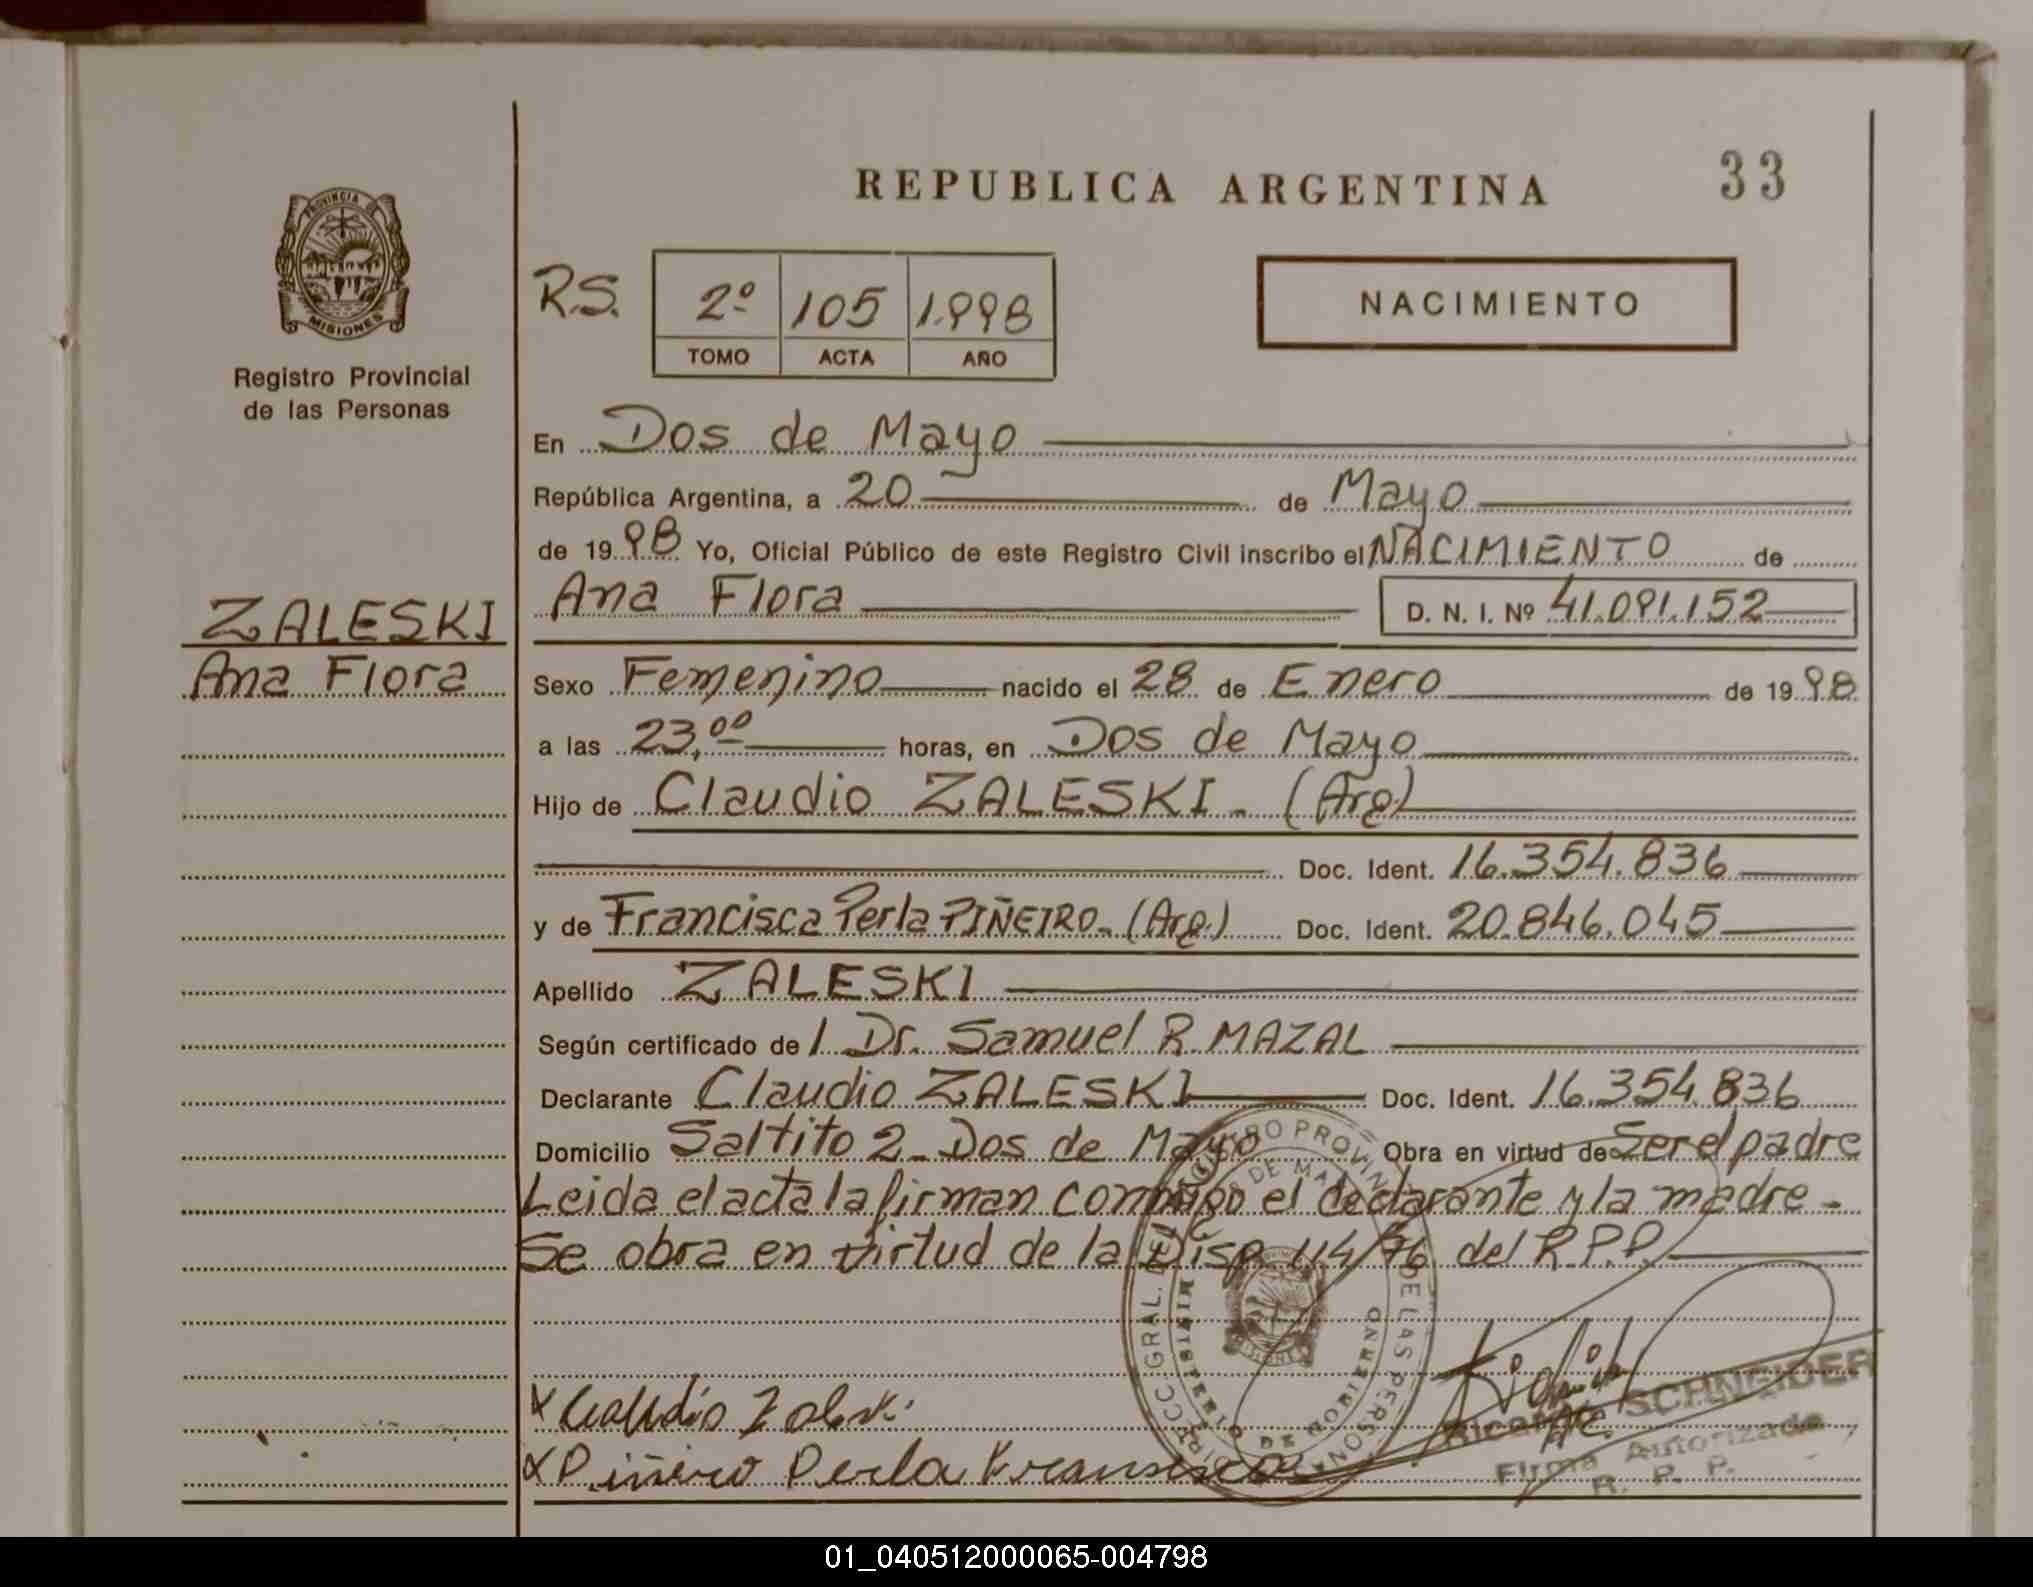 REPUBLICA ARGENTINA
33
PROVINCIA DE
MISIONES
Registro Provincial
de las Personas
R.S.
2º 105 1.998
TOMO ACTA AÑO
NACIMIENTO
En Dos de Mayo
República Argentina, a 20 de Mayo
de 19 98 Yo, Oficial Público de este Registro Civil inscribo el NACIMIENTO de
Ana Flora D. N. I. Nº 41.091.152
ZALESKI
Ana Flora
Sexo Femenino nacido el 28 de Enero de 19 98
a las 23,00 horas, en Dos de Mayo
Hijo de Claudio ZALESKI - (Arg.)
Doc. Ident. 16.354.836
y de Francisca Perla PIÑEIRO - (Arg.) Doc. Ident. 20.846.045
Apellido ZALESKI
Según certificado de l Dr. Samuel R. MAZAL
Declarante Claudio ZALESKI Doc. Ident. 16.354.836
Domicilio Saltito 2 - Dos de Mayo Obra en virtud de Ser el padre
Leida el acta la firman conmigo el declarante y la madre -
Se obra en virtud de la Disp. 114/76 del R.P.P.
Claudio Zaleski
Piñeiro Perla Francisca
Ricardo SCHNEIDER
Firma Autorizada
R. P. P.
01_040512000065-004798